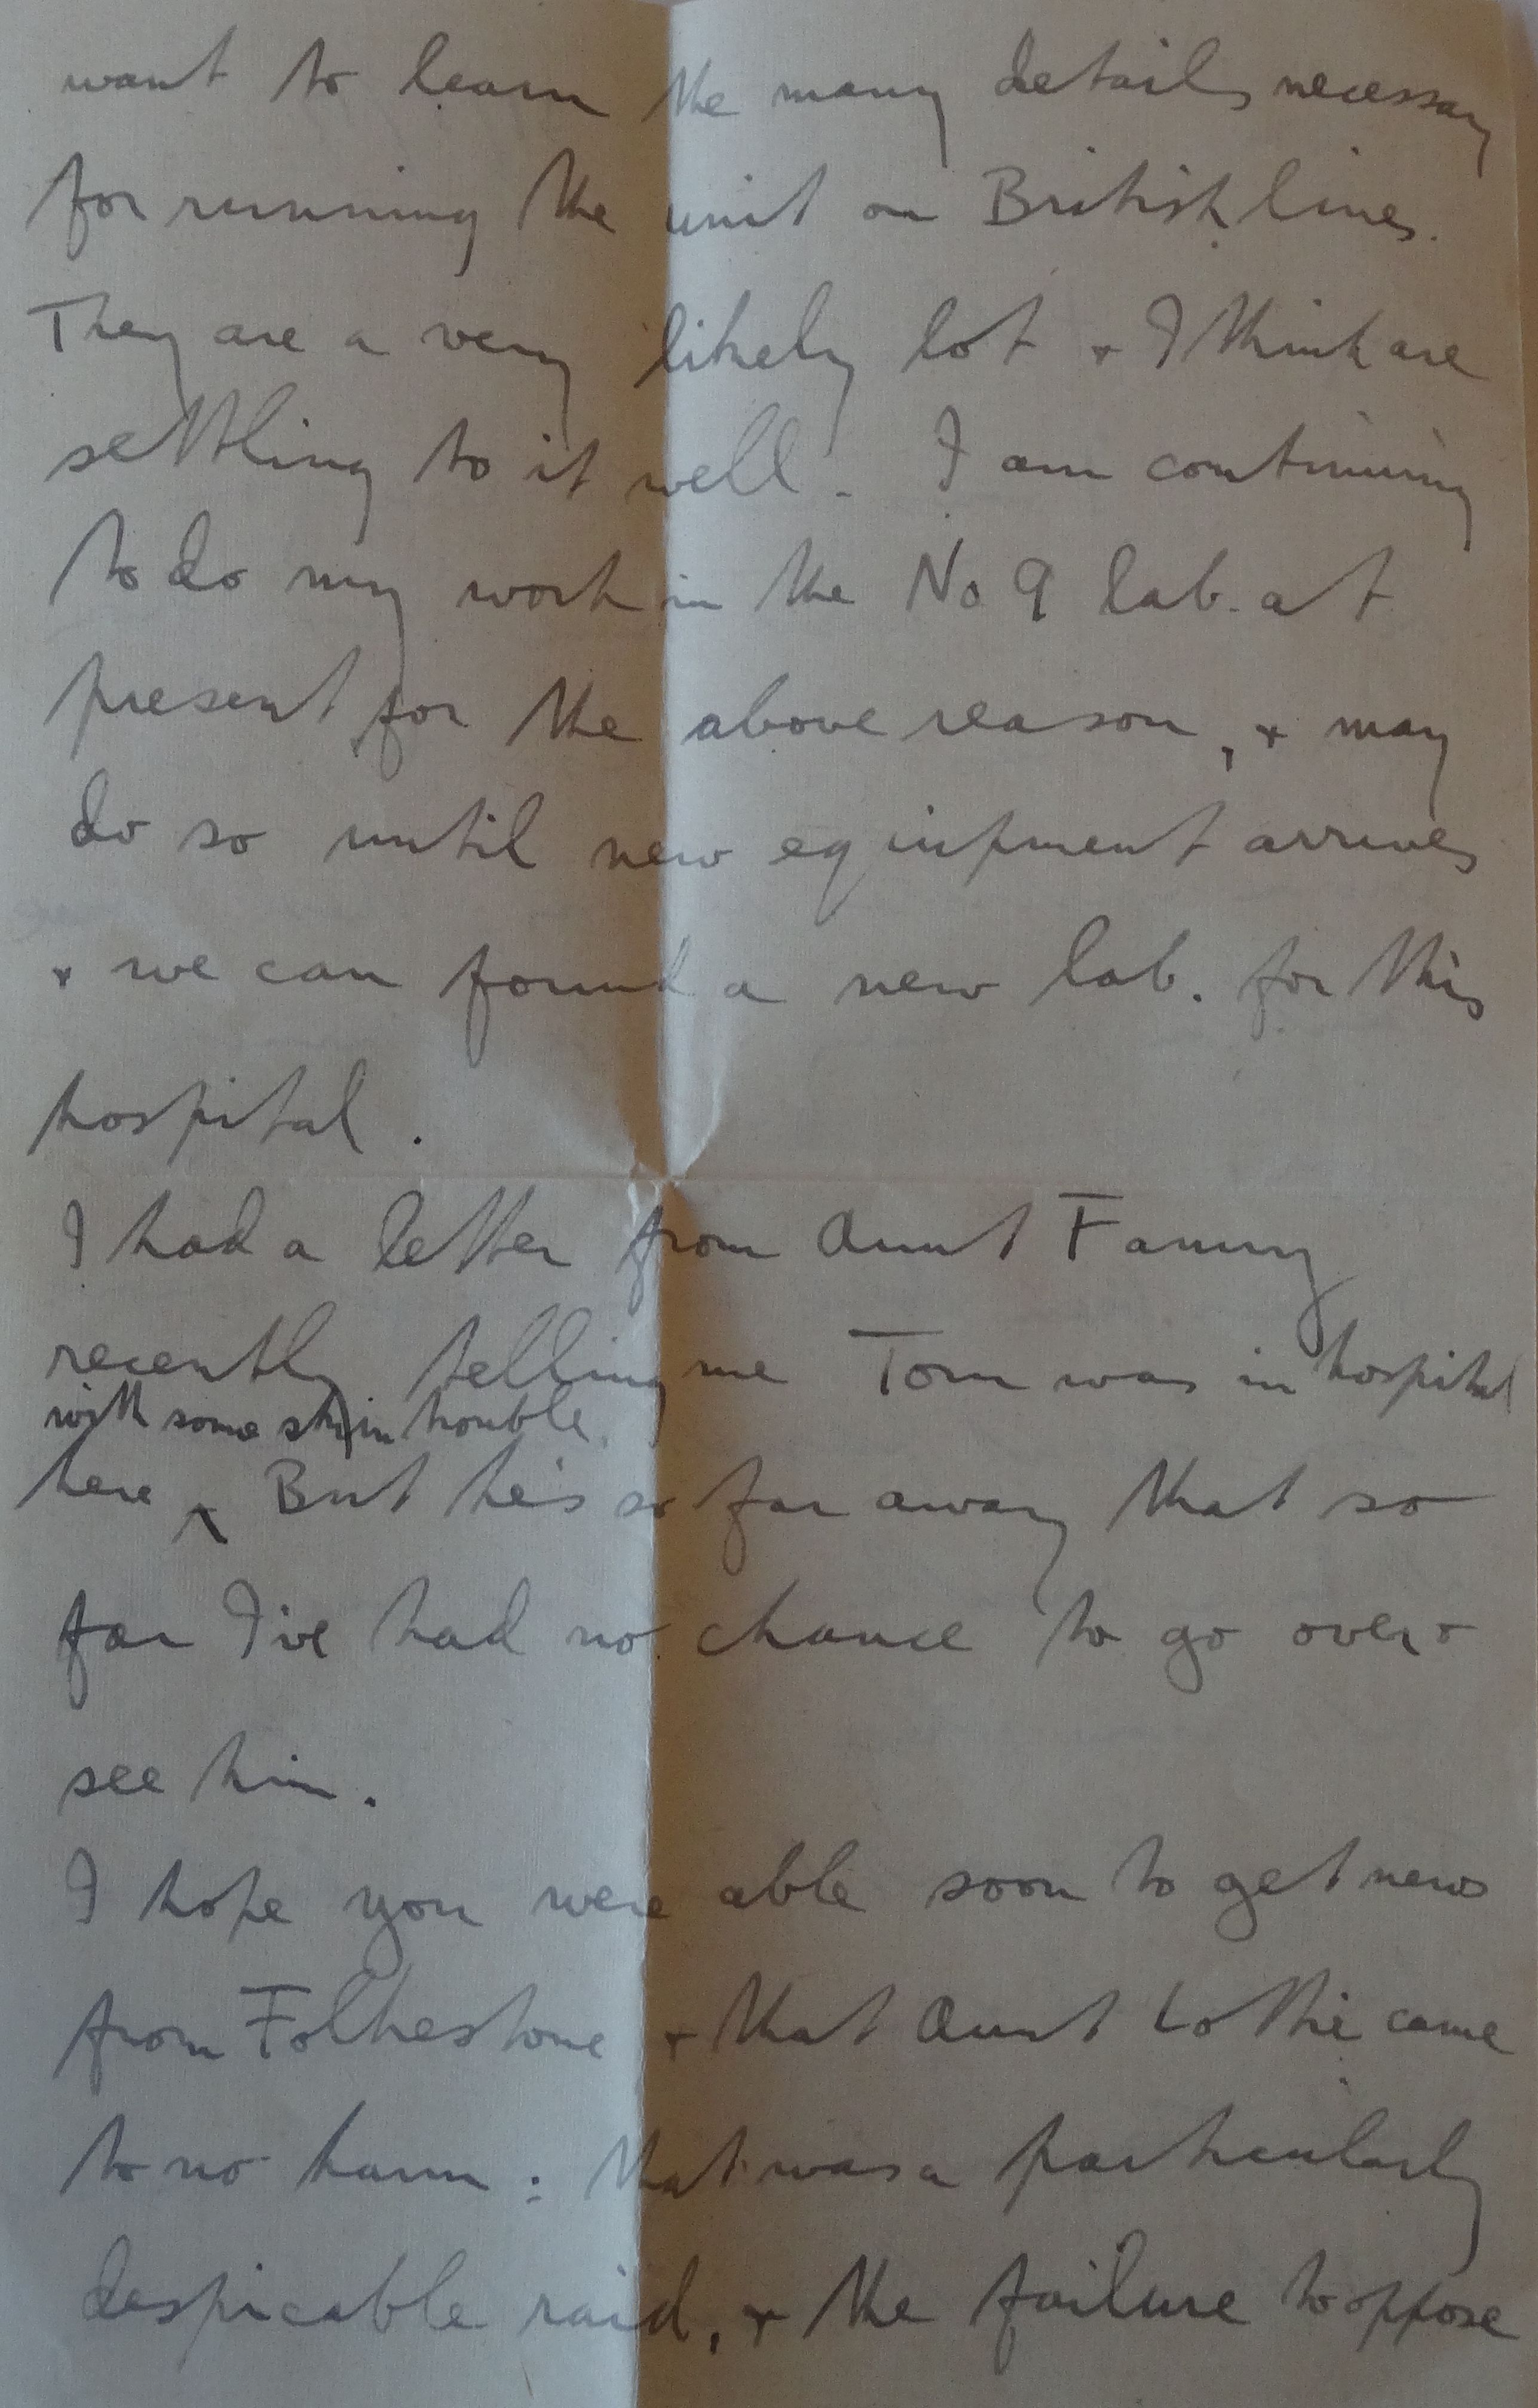 want to learn the many details necessary
for running the unit on British lines.
They are a very likely lot + I think are
settling to it well. I am continuing
to do my work in the No 9 lab. at
present for the above reason, + may
do so until new equipment arrives
+ we can found a new lab. for this
hospital.
I had a letter from Aunt Fanny
recently telling me Tom was in hospital
with some skin trouble.
here ^ But he's so far away that so
far I've had no chance to go over +
see him.
I hope you were able soon to get news
from Folkestone + that Aunt Lottie came
to no harm: that was a particularly
despicable raid, + the failure to oppose